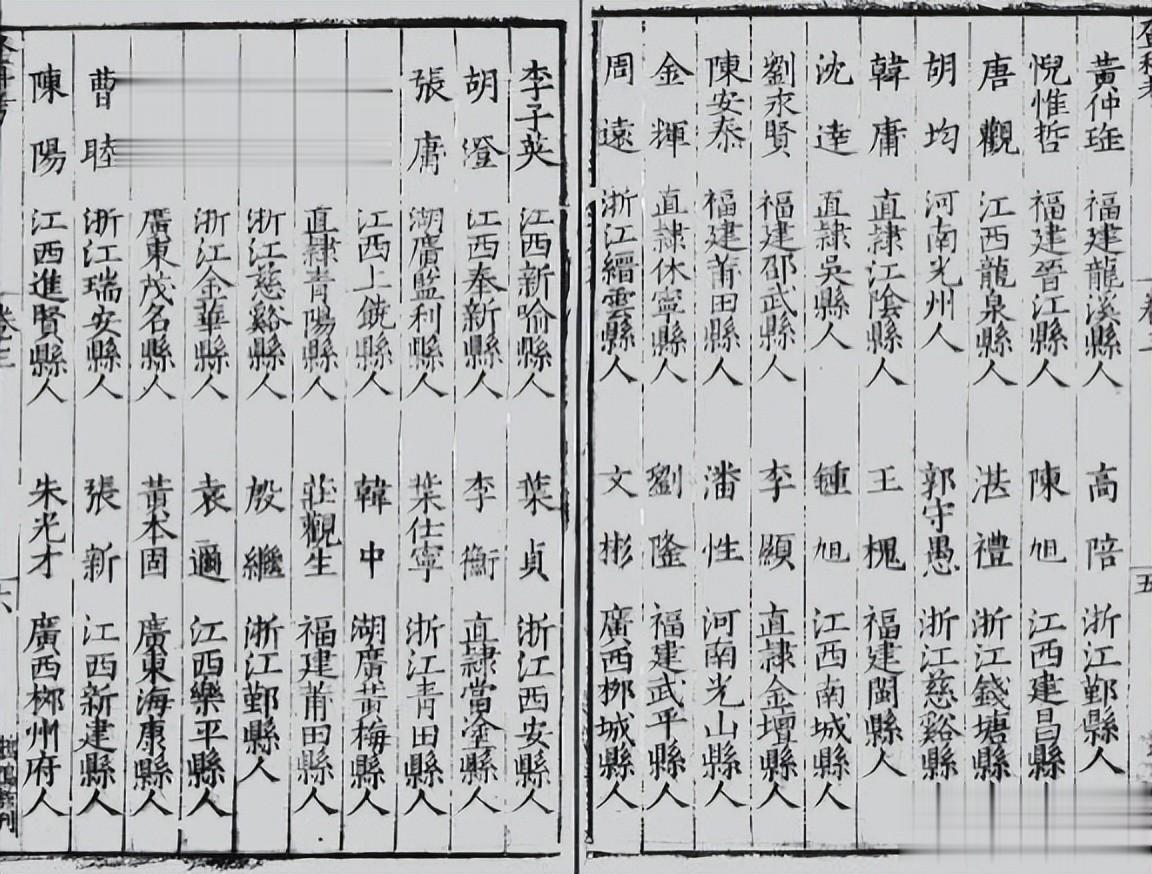 黃仲 福建龍溪縣人 高陪 浙江鄞縣人
倪惟哲 福建晉江縣人 陳旭 江西建昌縣
唐觀 江西龍泉縣人 湛禮 浙江錢塘縣
胡均 河南光州人 郭守愚 浙江慈谿縣
韓庸 直隷江陰縣人 王槐 福建閩縣人
沈達 直隷吳縣人 鍾旭 江西南城縣人
劉永賢 福建邵武縣人 李顯 直隷金壇縣人
陳安泰 福建莆田縣人 潘性 河南光山縣人
金輝 直隷休寧縣人 劉隆 福建武平縣人
周遠 浙江縉雲縣人 文彬 廣西柳城縣人
卷三
五
李子英 江西新喻縣人 葉貞 浙江西安縣人
胡澄 江西奉新縣人 李衡 直隷當塗縣人
張庸 湖廣監利縣人 葉仕寧 浙江青田縣人
江西上饒縣人 韓中 湖廣黃梅縣人
直隷青陽縣人 莊觀生 福建莆田縣人
浙江慈谿縣人 殷繼 浙江鄞縣人
浙江金華縣人 袁邇 江西樂平縣人
廣東茂名縣人 黃本固 廣東海康縣人
曹睦 浙江瑞安縣人 張新 江西新建縣人
陳陽 江西進賢縣人 朱光才 廣西柳州府人
卷三
六